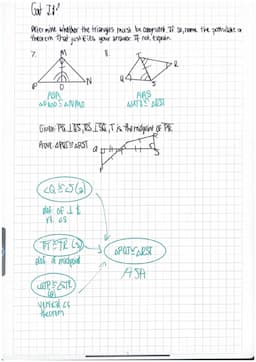 Got It!
Determine whether the triangles must be congruent. If so, name the postulate or
theorem that justifies your answer. If not, explain.
7. 8.
M
R
P O N
Q S
ASA AAS
Given: PQ ⊥ QS, RS ⊥ SQ, T is the midpoint of PR
Prove: △PQT ≅ △RST
∠Q ≅ ∠S (a)
def of ⊥ &
PT ≅ TR (s)
def of midpoint
△PQT ≅ △RST
ASA
(a)
vertical ∠s
theorem